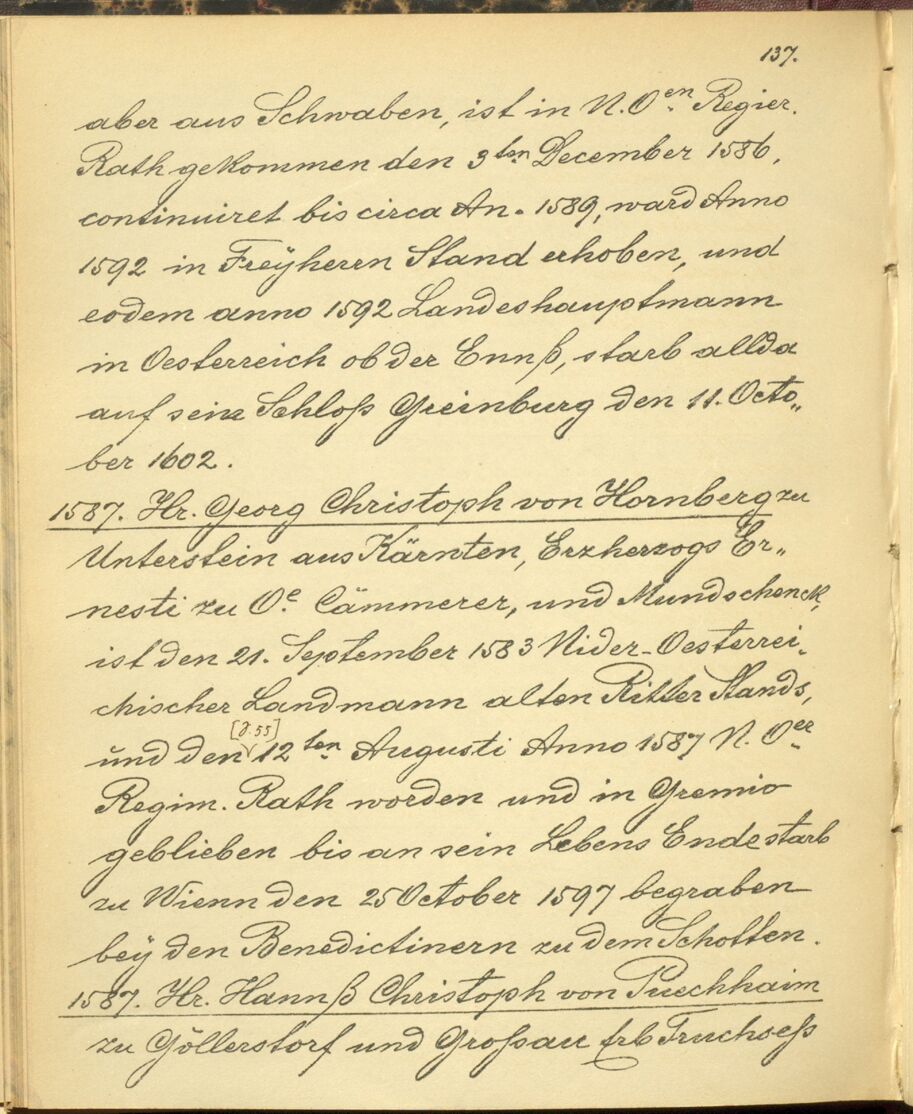 137.
aber aus Schwaben, ist in N. Oen. Regier.
Rath gekommen den 3ten December 1586,
continuiret bis circa An. 1589, ward Anno
1592 in Freÿherrn Stand erhoben, und
eodem anno 1592 Landeshauptmann
in Oesterreich ob der Ennß, starb allda
auf sein Schloß Greinburg den 11. Octo„
ber 1602.
1587. Hr. Georg Christoph von Hornberg zu
Unterstein aus Kärnten, Erzherzogs Er„
nesti zu Oe. Cämmerer, und Mundschenck,
ist den 21. September 1583 Nider-Oesterrei„
chischer Landmann alten Ritter Stands,
[J. 55]
und den 12ten Augusti Anno 1587 N. Oer
Regim. Rath worden und in Gremio
geblieben bis an sein Lebens Ende starb
zu Wienn den 25 October 1597 begraben
beÿ den Benedictinern zu dem Schotten.
1587. Hr. Hannß Christoph von Puechhaim
zu Göllerstorf und Großau Erb Truchseß